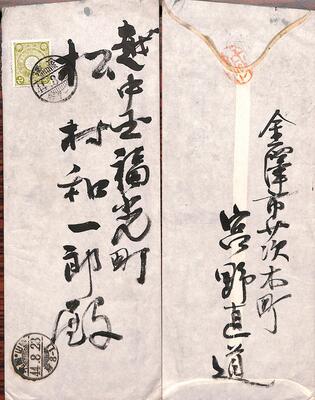 越中国福光町
松村和一郎殿
44.8.23
金澤市廿次木町
宮野直道